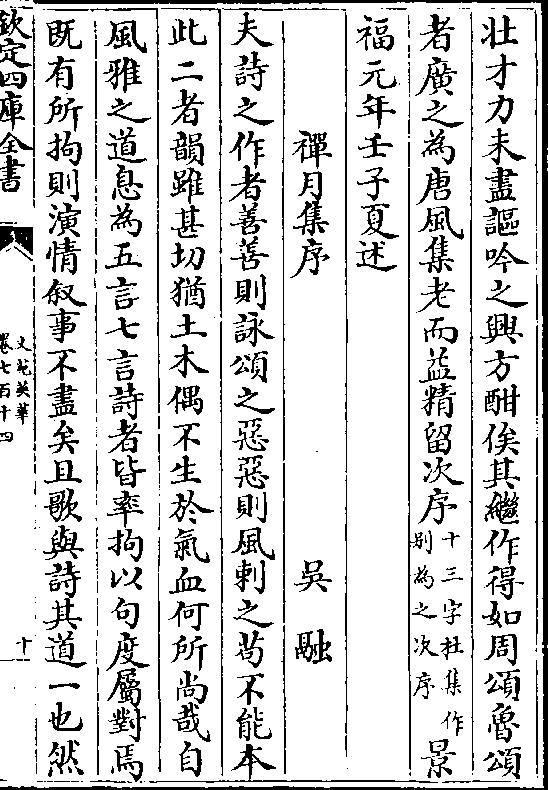 壮才力未盡謳吟之興方酣俟其繼作得如周頌魯頌
者廣之為唐風集老而益精留次序十三字杜集作别為之次序景
福元年壬子夏述
禪月集序
吳融
夫詩之作者善善則詠頌之惡惡則風刺之苟不能本
此二者韻雖甚切猶土木偶不生於氣血何所尚哉自
風雅之道息為五言七言詩者皆率拘以句度屬對焉
既有所拘則演情叙事不盡矣且歌與詩其道一也然
欽定四庫全書
文苑英華
卷七百十四
十